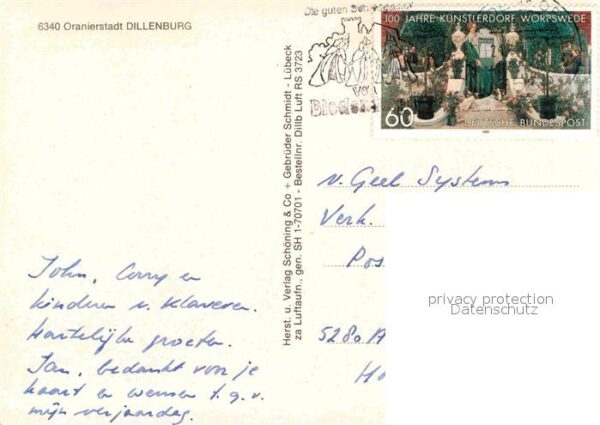 6340 Oranierstadt DILLENBURG
Die guten
von
100 JAHRE KÜNSTLERDORF WORPSWEDE
60
DEUTSCHE BUNDESPOST
Herst. u. Verlag Schöning & Co + Gebrüder Schmidt - Lübeck
za Luftaufn., gen. SH 1-70701 - Bestellnr. Dillb Luft RS 3723
v. Geel Systems
Verk.
Pos
privacy protection
Datenschutz
5280 A
Ho
John, Corry en
kinderen v. Klaveren.
Hartelijke groeten.
Jan, bedankt voor je
kaart en wensen t.g.v.
mijn verjaardag.